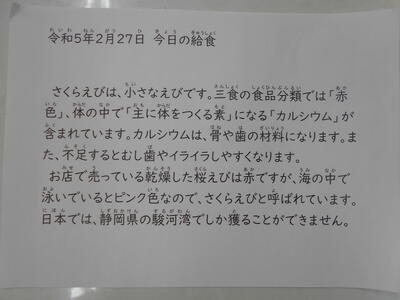 令和5年2月27日 今日の給食
さくらえびは、小さなえびです。三食の食品分類では「赤
色」、体の中で「主に体をつくる素」になる「カルシウム」が
含まれています。カルシウムは、骨や歯の材料になります。ま
た、不足するとむし歯やイライラしやすくなります。
お店で売っている乾燥した桜えびは赤ですが、海の中で
泳いでいるとピンク色なので、さくらえびと呼ばれています。
日本では、静岡県の駿河湾でしか獲ることができません。